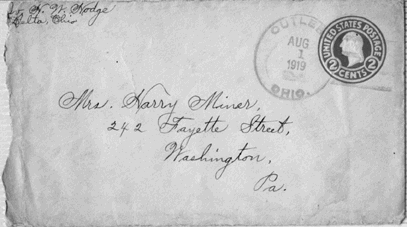 H. W. Hodge
Ohio
CUTLER
AUG
1
1919
OHIO.
UNITED STATES POSTAGE
2 CENTS 2
Mrs. Harry Miner,
242 Fayette Street,
Washington,
Pa.